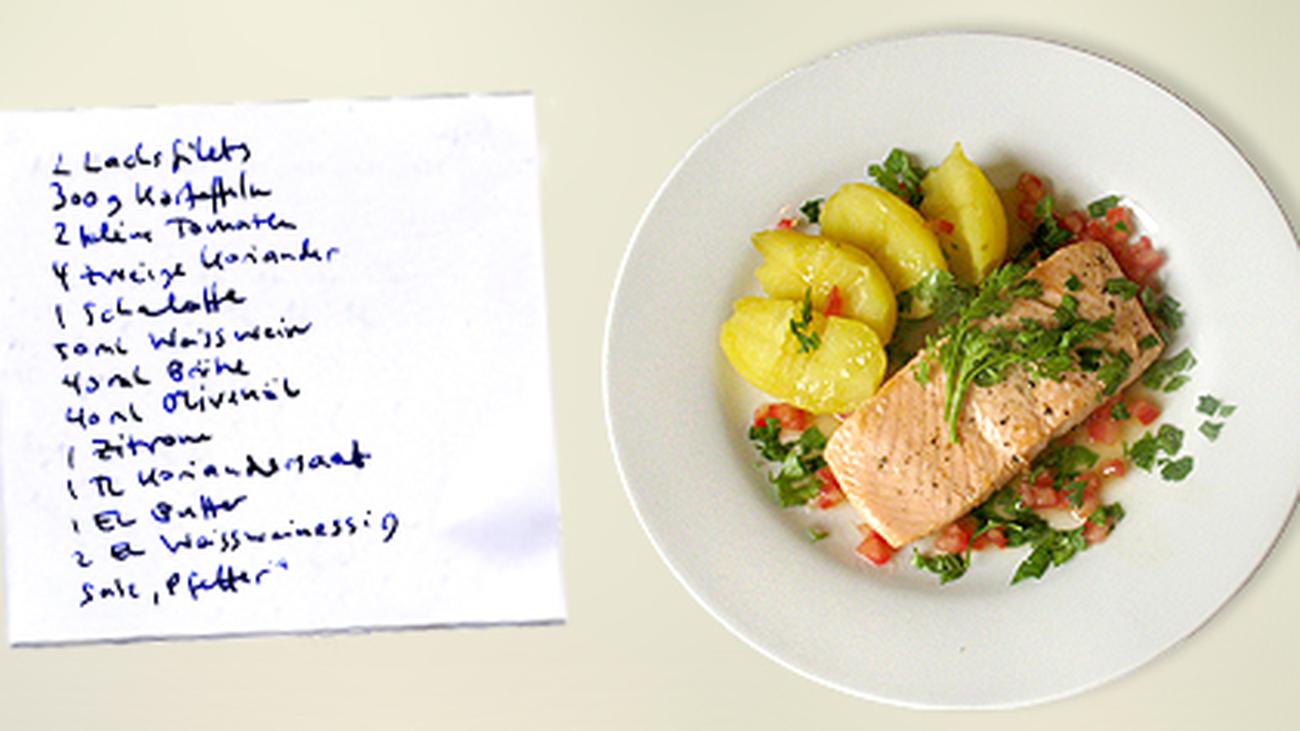 2 Lachsfilets
300g Kartoffeln
2 kleine Tomaten
4 Zweige Koriander
1 Schalotte
50ml Weisswein
40ml Brühe
40ml Olivenöl
1 Zitrone
1 TL Koriandersaat
1 EL Butter
2 EL Weissweinessig
Salz, Pfeffer